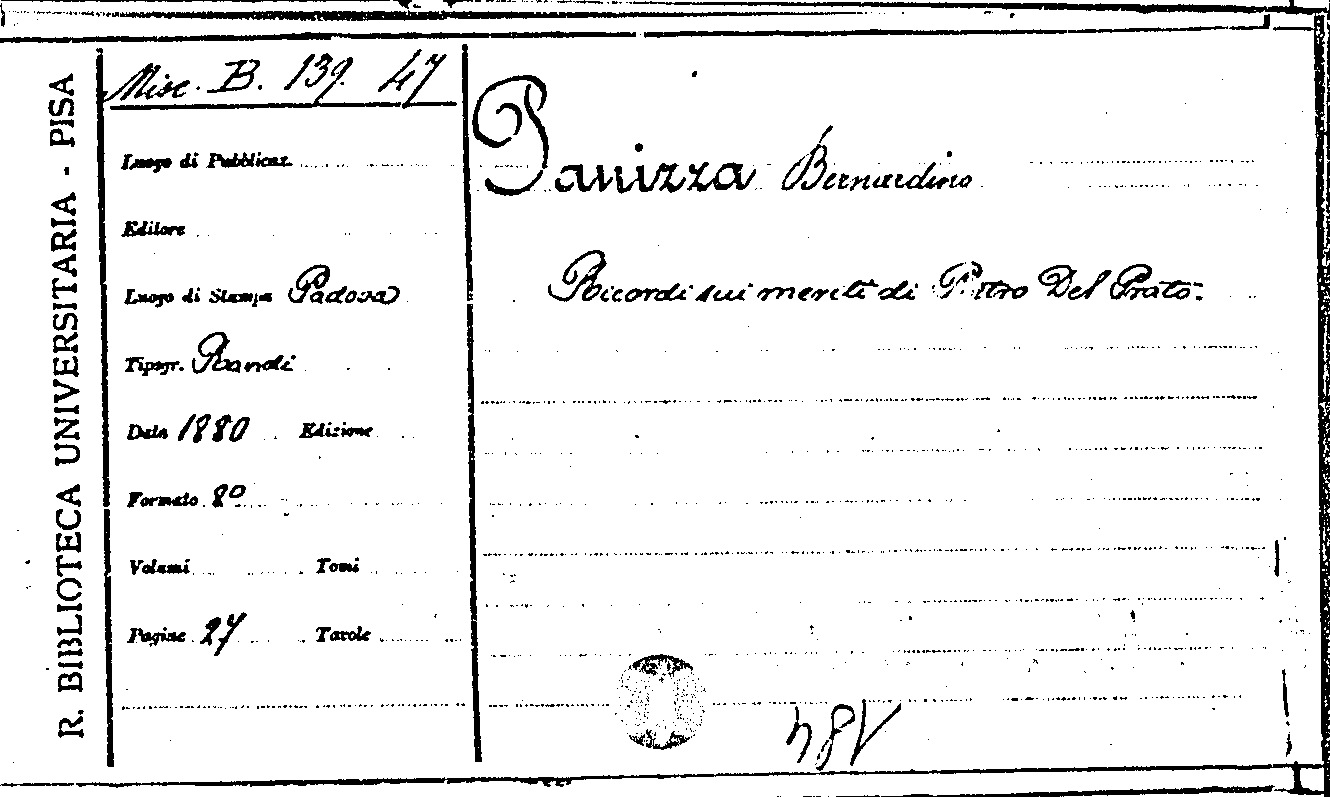 R. BIBLIOTECA UNIVERSITARIA - PISA
Misc. B. 139. 47
Luogo di Pubblicaz.
Editore
Luogo di Stampa Padova
Tipogr. Randi
Data 1880 Edizione
Formato 8º
Volumi Tomi
Pagine 27 Tavole
Panizza Bernardino
Ricordi sui meriti di Pietro Del Prato.